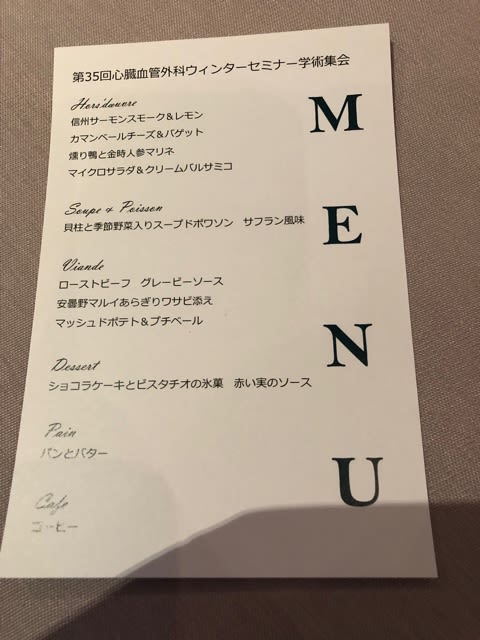 第35回心臓血管外科ウィンターセミナー学術集会
Hors'dœuvre
信州サーモンスモーク＆レモン
カマンベールチーズ＆バゲット
燻り鴨と金時人参マリネ
マイクロサラダ＆クリームバルサミコ
Soupe & Poisson
貝柱と季節野菜入りスープドポワソン　サフラン風味
Viande
ローストビーフ　グレービーソース
安曇野マルイあらぎりワサビ添え
マッシュドポテト＆プチベール
Dessert
ショコラケーキとピスタチオの氷菓　赤い実のソース
Pain
パンとバター
Cafe
コーヒー
MENU